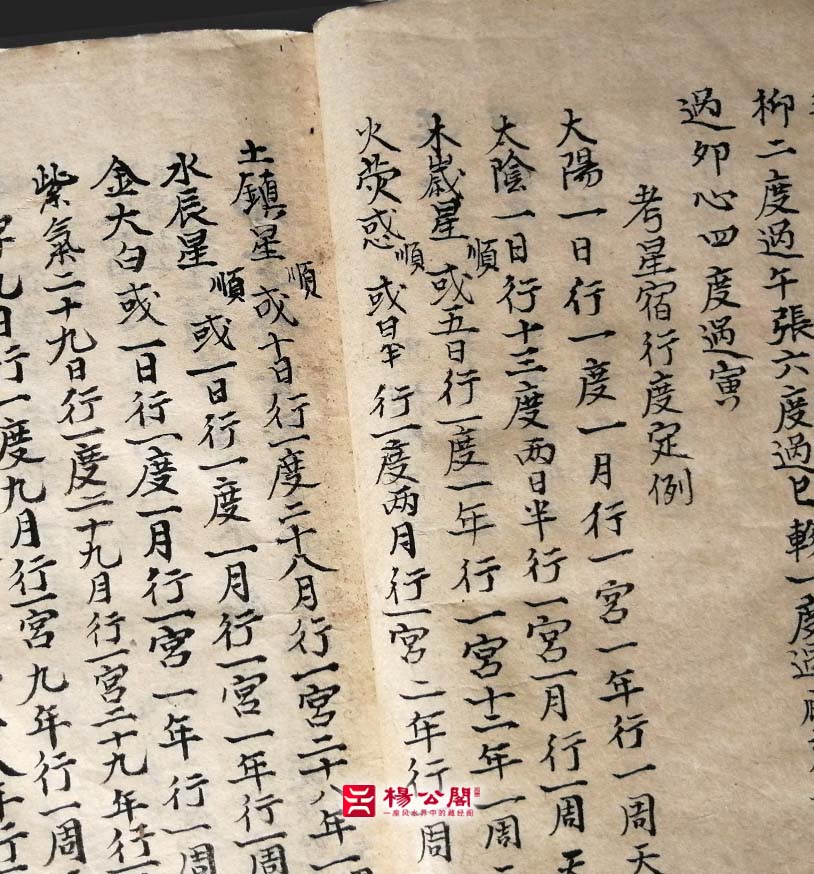 柳二度過午張六度過巳軫一度過
過卯心四度過寅
考星宿行度定例
太陽一日行一度一月行一宮一年行一周天
太陰一日行十三度兩日半行一宮一月行一周天
木歲星順或五日行一度一年行一宮十二年一周
火熒惑順或日半行一度兩月行一宮二年行一周
土鎮星順或十日行一度二十八月行一宮二十八年一
水辰星順或一日行一度一月行一宮一年行一周
金太白或一日行一度一月行一宮一年行一周
紫氣二十九日行一度二十九月行一宮二十九年行
九日行一度九月行一宮九年行一周
八年行
楊公閣
一座风水界中的藏经阁